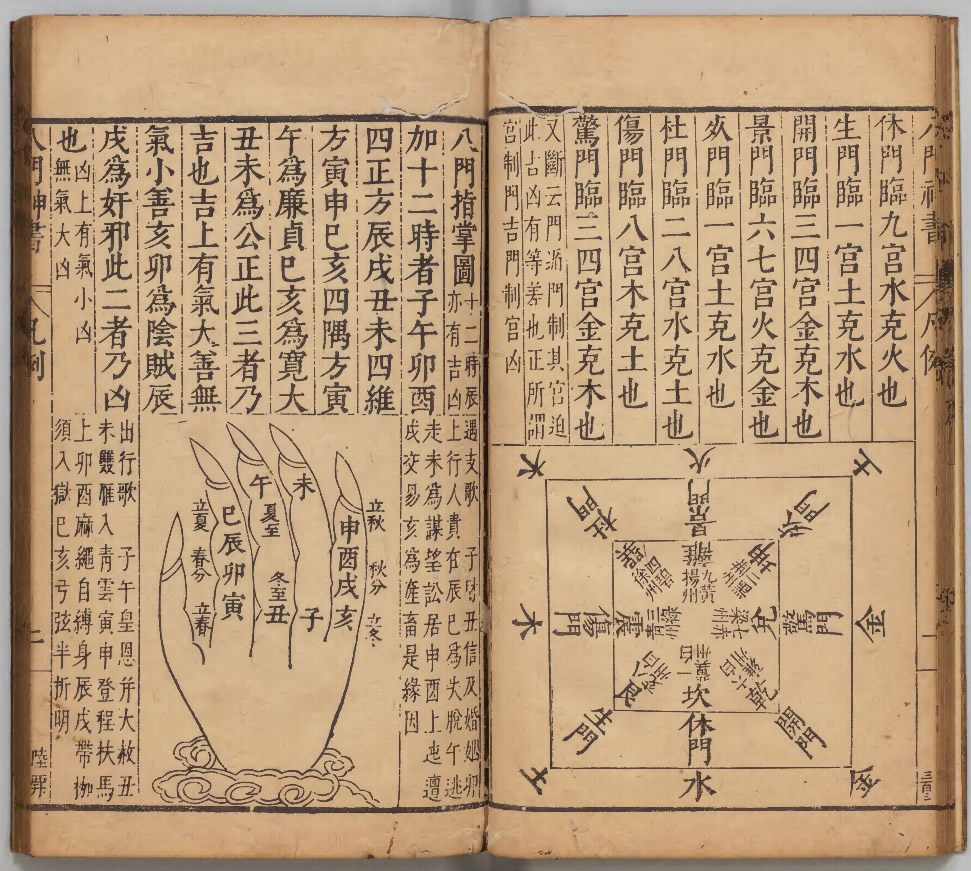 休門臨九宮水克火也
生門臨一宮土克水也
開門臨三四宮金克木也
景門臨六七宮火克金也
死門臨一宮土克水也
杜門臨二八宮木克土也
傷門臨八宮木克土也
驚門臨三四宮金克木也
又斷云門制其宮迫
此占凶有等差也正所謂
宮制門吉門制宮凶
火
土
金
金
水
土
木
木
景門
死門
驚門
開門
休門
生門
傷門
杜門
離
坤
兌
乾
坎
艮
震
巽
九黃
揚州
八門指掌圖
十二時辰
亦有吉凶
加十二時者子午卯酉
四正方辰戌丑未四維
方寅申巳亥四隅方寅
午為廉貞巳亥為寬大
丑未為公正此三者乃
吉也吉上有氣大善無
氣小善亥卯為陰賊辰
戌為奸邪此二者乃凶
也
凶上有氣小凶
無氣大凶
遇支歌
上行人貴在辰巳為失脫午逃
走未為謀望訟居申酉上迍邅
戌交易亥為產畜是緣因
未
午
巳
辰
卯
寅
丑
子
申
酉
戌
亥
立夏
春分
立春
夏至
冬至
立秋
秋分
立冬
出行歌
子午皇恩并大赦丑
未雙雁入青雲寅申登程扶馬
上卯酉麻繩自縛身辰戌帶枷
須入獄巳亥弓弦半折明
八門神書
凡例